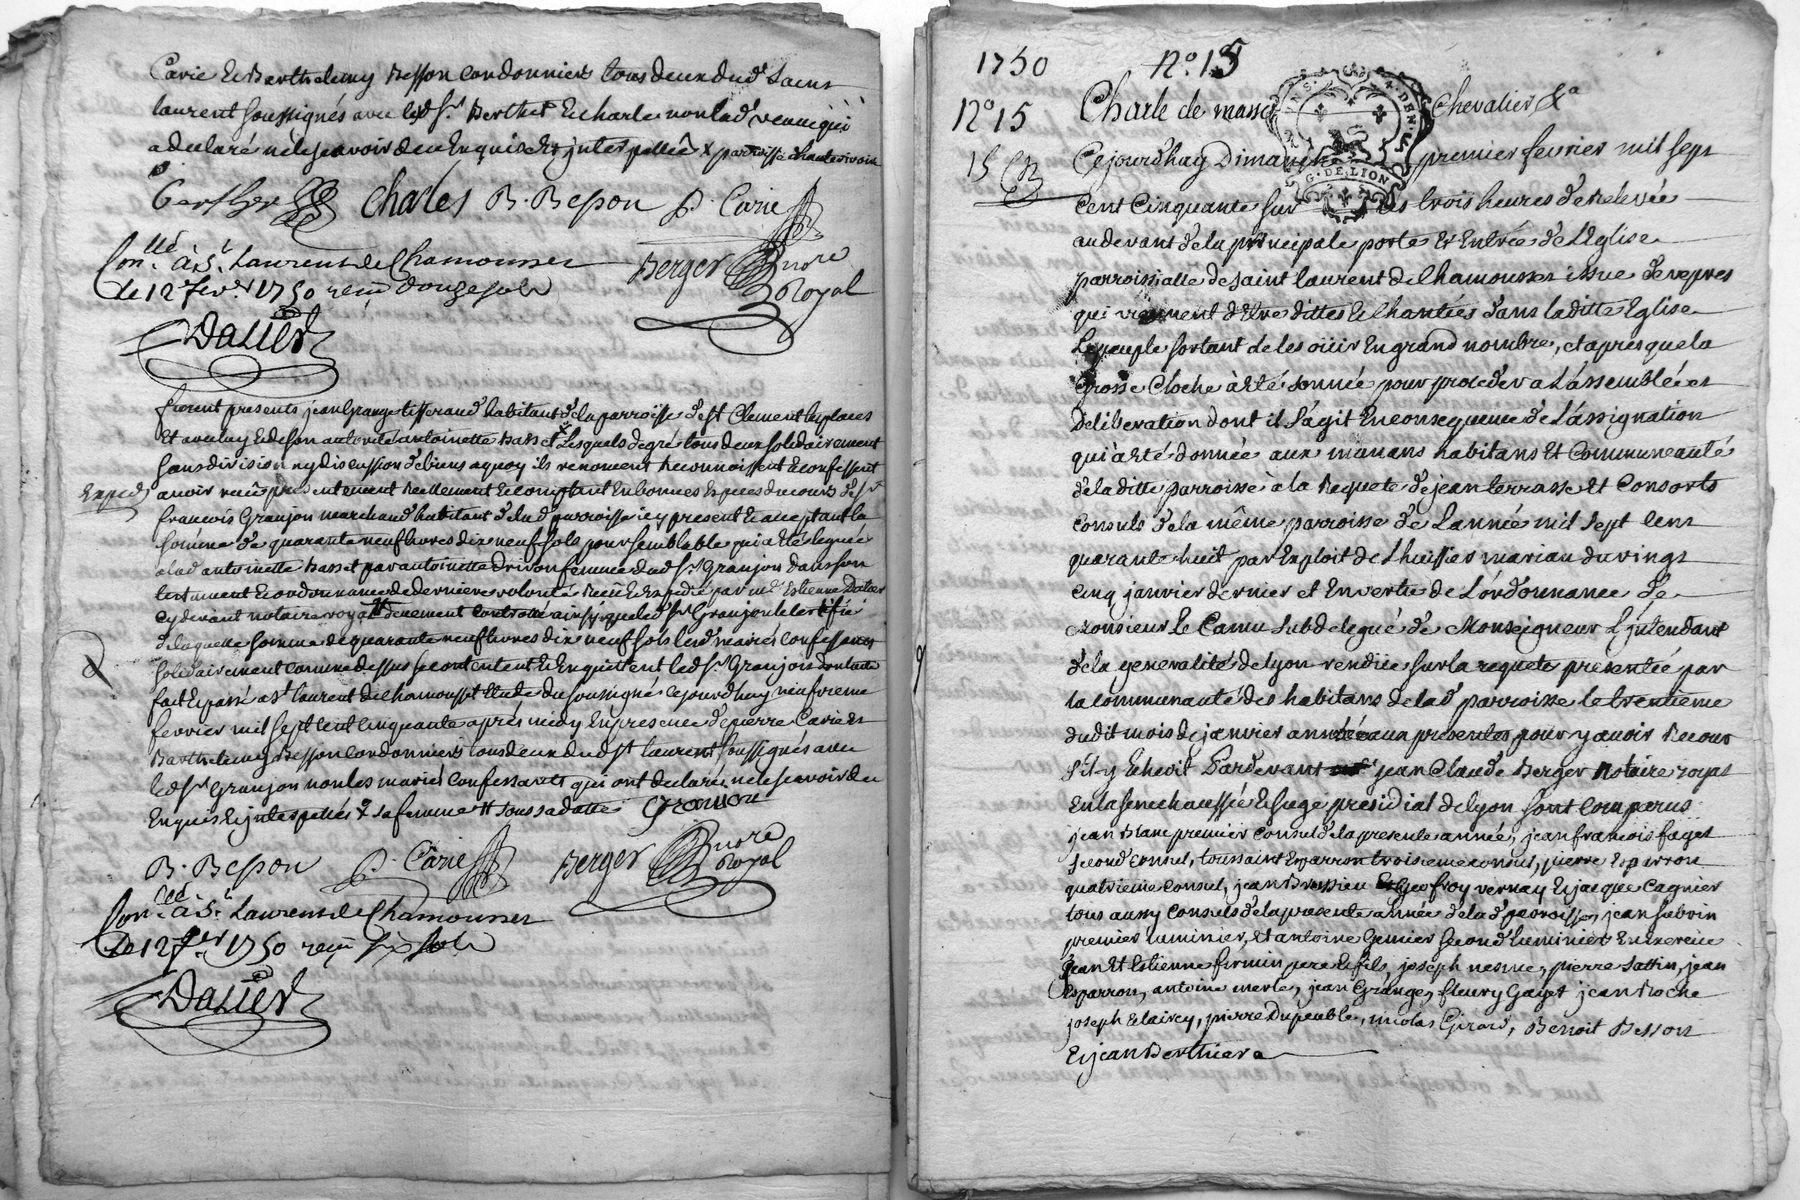 Carie & Barthelemy Besson cordonniers tous deux dud.t Saint
laurent soussignés avec led S.r Berthet & charle non lad.e veuve qui
a declaré ne le scavoir de ce Enquise & interpellée x parroisse d'hauterivoire
Berthet Charles B. Besson P. Carie
Con.llé à S.t Laurent de Chamousset Berger no.re
le 12 fev.er 1750 recu douze sols Royal
Dalier
furent presents jean Grange tisserand habitant de la parroisse de st Clement les places
Et avec luy & de son autorité antoinette Basset x Lesquels de gré tous deux solidairement
sans division ny discussion de biens a quoy ils renoncent reconnoissent & confessent
Exped.
avoir recû presentement reellement & comptant En bonnes Especes du cours de s.r
francois Granjon marchand habitant de lad parroisse icy present & acceptant la
somme de quarante neuf livres dix neuf sols pour semblable qui a Eté leguée
a lad antoinette Basset par antoinette femme dud S.r Granjon dans son
testament & ordonnance de derniere volonté recû & Expedié par m.e Estienne Dalier
cy devant notaire royal # deuement controllé ainsy que led S.r Granjon le certifie
de laquelle somme de quarante neuf livres dix neuf sols lesd mariés confessants
solidairement comme dessus se contentent & En quittent led S.r Granjon dont acte
fait & passé a S.t laurent de chamousset Etude du soussigné cejourd'huy neufvieme
fevrier mil sept cent cinquante aprés midy En presence de pierre Carie &
Barthelemy Besson cordonniers tous deux dud S.t laurent soussignés avec
led S.r Granjon non les mariés confessants qui ont declaré ne le scavoir de ce
Enquis & interpellés x sa femme # sous sa datte Granjon
B. Besson P. Carie Berger no.re
Royal
Con.llé à S.t Laurent de Chamousset
le 12 f.er 1750 recu six sols
Dalier
1750 N.o 15
N.o 15 Charle de masso Chevalier &a
15
Cejourd'huy Dimanche premier fevrier mil sept
Cent Cinquante sur les trois heures de relevée
au devant de la principale porte Et Entrée de L'Eglise
parroissialle de saint laurent de Chamousset issue de vepres
qui viennent d'Etre dittes & Chantées dans laditte Eglise
Le peuple sortant de les oüir En grand nombre, et apres que la
Grosse Cloche à Eté sonnée pour proceder a L'assemblée et
déliberation dont il S'agit En consequence de L'assignation
qui à Eté donnée aux manans habitans Et Communeauté
de laditte parroisse à la Requete de jean terrasse Et Consorts
Consuls de la même parroisse de L'année mil sept Cent
quarante huit par Exploit de L'huissier mariau du vingt
cinq janvier dernier et En vertu de L'ordonnance de
Monsieur Le Camu subdelegué de Monseigneur L'intendant
de la generalité de lyon rendüe sur la requete presentée par
la Communauté des habitans de lad parroisse le trentieme
dudit mois de janvier aux presentes pour y avoir Recours
S'il y Echeoit Pardevant jean Claude Berger Notaire royal
En la senechaussée & siege presidial de lyon sont comparus
jean Blanc premier consul de la presente année, jean francois faget
second consul, toussaint Esparron troisieme consul, pierre Esparron
quatrieme consul, jean Bressieu & Geofroy vernay & jacque Cagnier
tous aussy Consuls de la presente année de la d.e parroisse, jean subrin
premier luminier, Et antoine Gemier second luminier En Exercice
jean Et Estienne firmin pere & fils, joseph nesme, pierre Sattin, jean
Esparron, antoine merle, jean Grange, fleury Gayet jean Roche
joseph Eclaircy, pierre Dupeuble, nicolas Girard, Benoit Besson
& jean Berthiera
G. DE LION